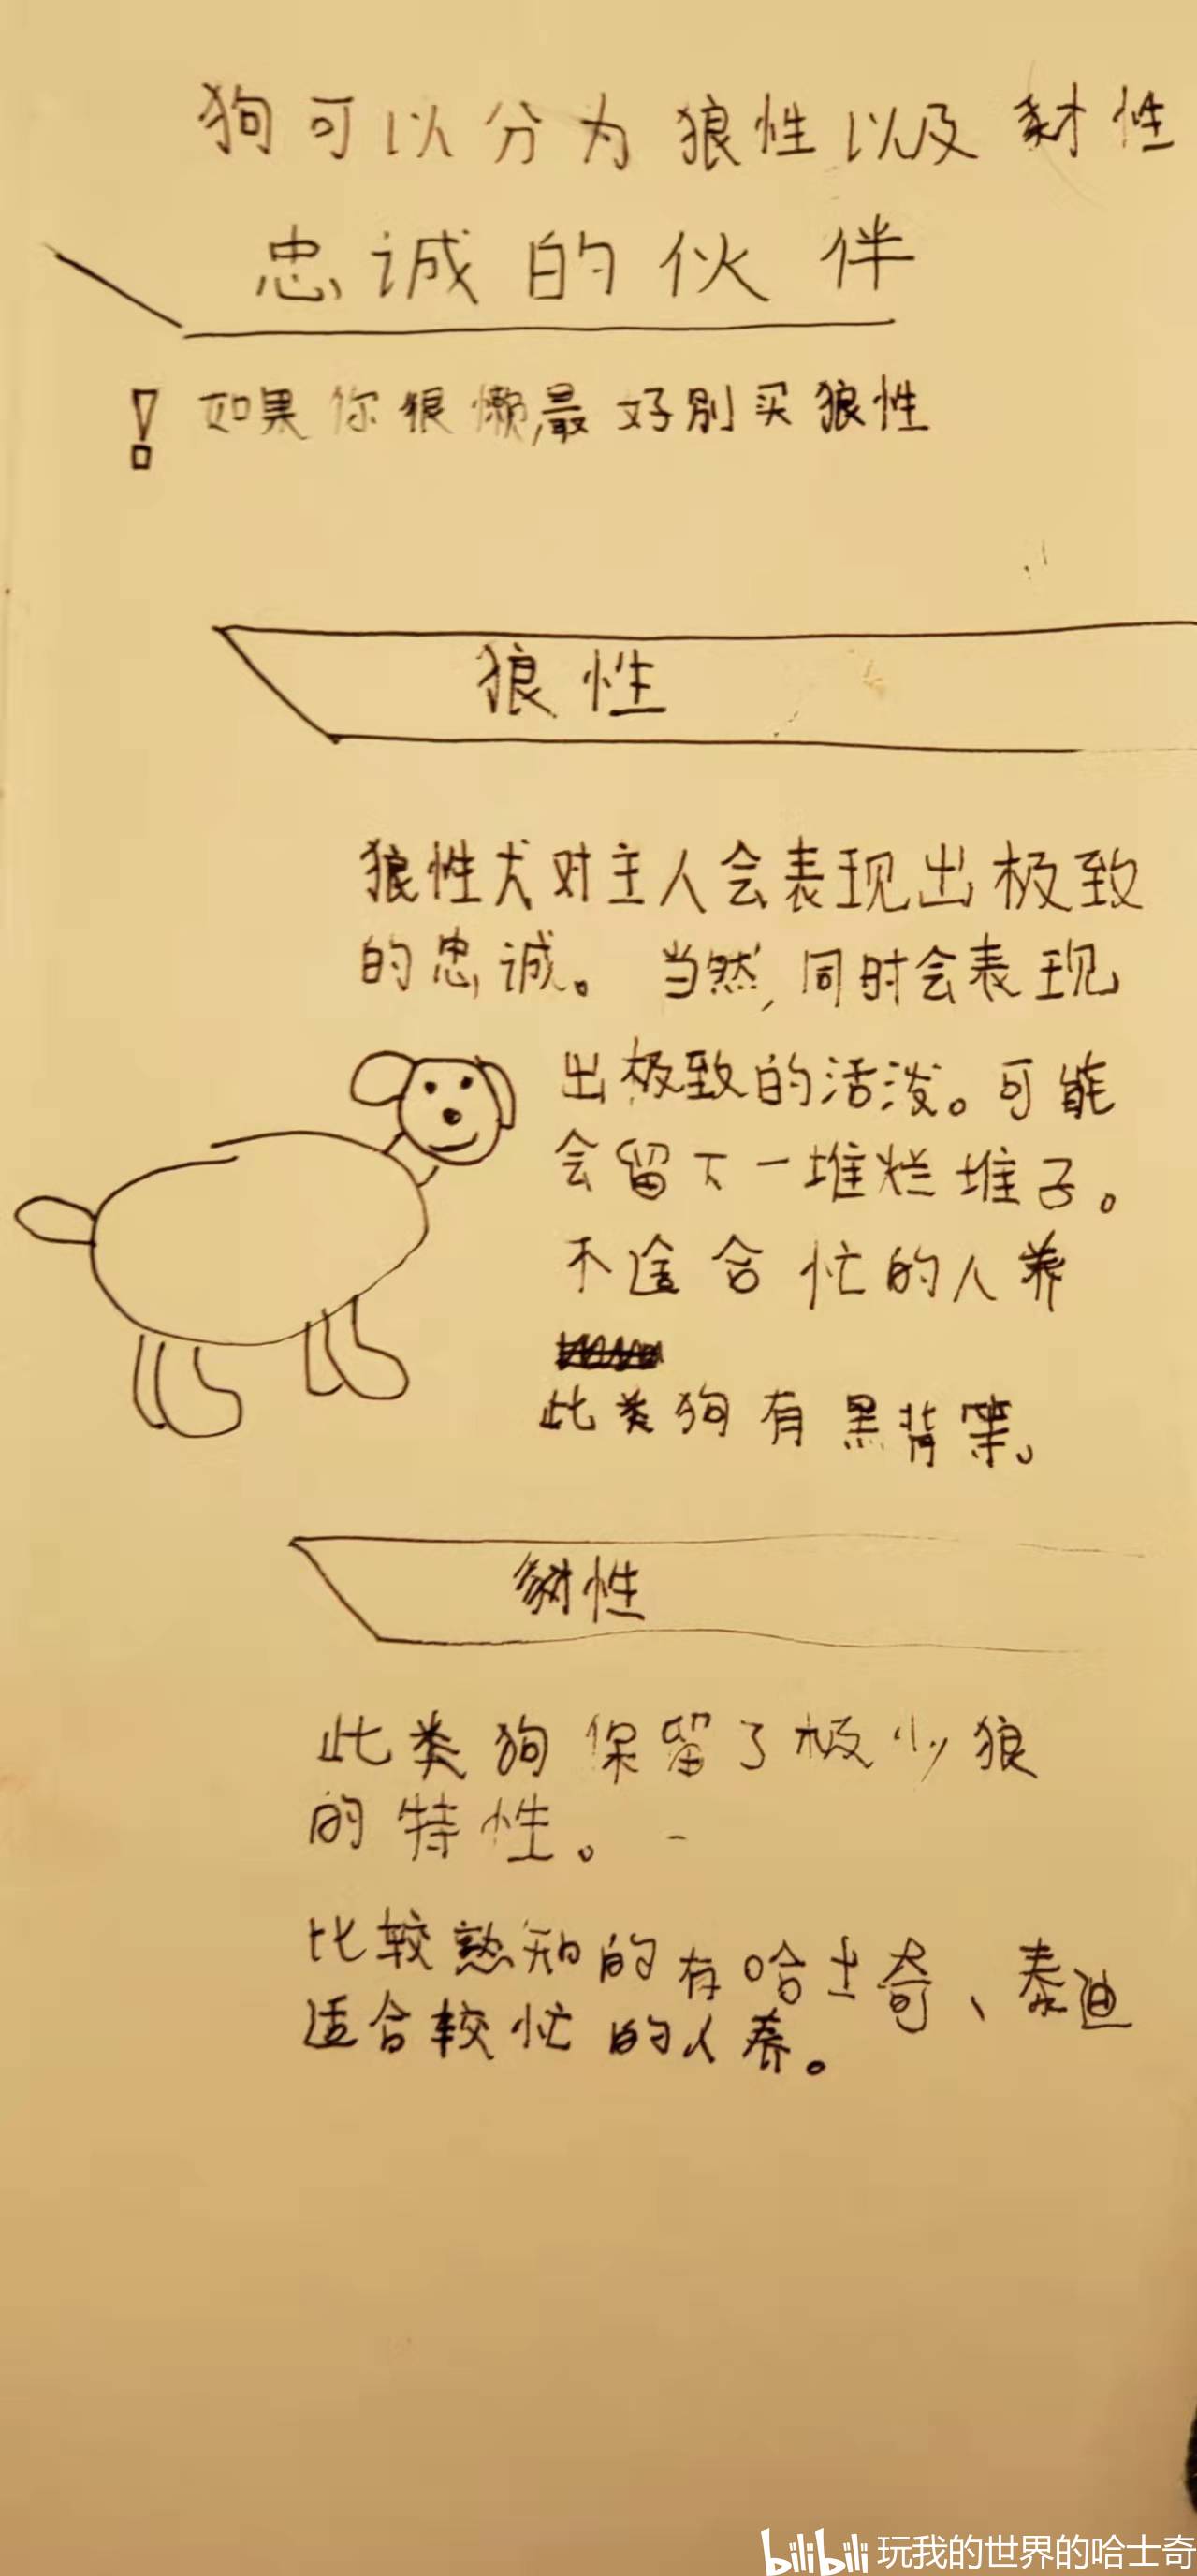 狗可以分为狼性以及豺性
忠诚的伙伴
! 如果你很懒,最好别买狼性
狼性
狼性犬对主人会表现出极致
的忠诚。当然,同时会表现
出极致的活泼。可能
会留下一堆烂堆子。
不适合忙的人养
此类狗有黑背等。
豺性
此类狗保留了极少狼
的特性。
比较熟知的有哈士奇、泰迪
适合较忙的人养。
bilibili 玩我的世界的哈士奇